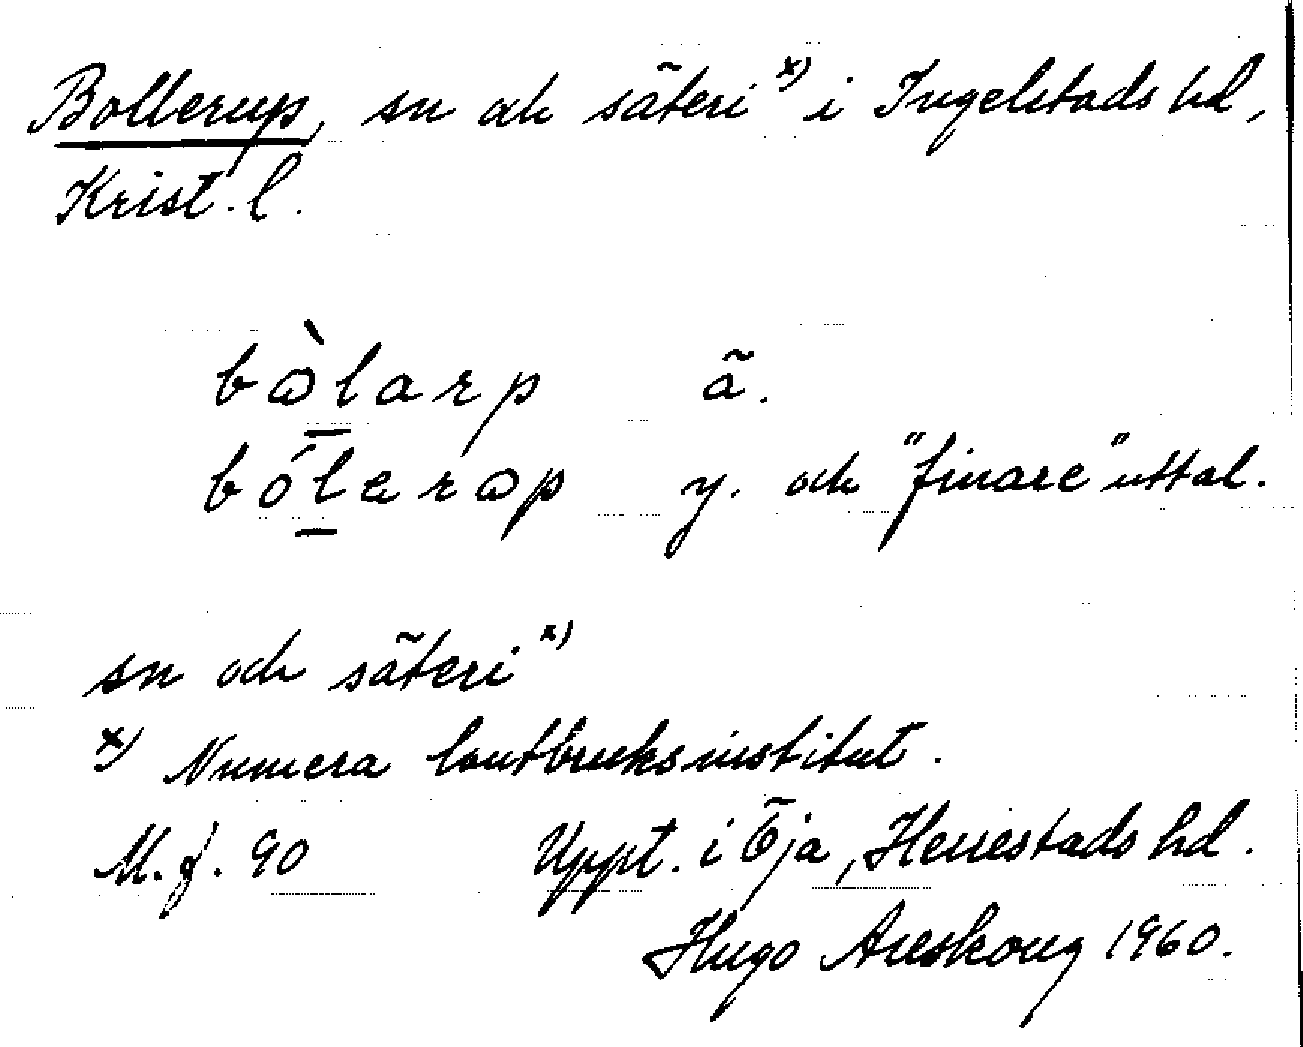 Bollerup, sn och säteri x) i Ingelstads hd,
Krist. l.
bὼlarp ä.
bólerωp y. och "finare" uttal.
sn och säteri x)
x) Numera lantbruksinstitut.
M. f. 90 Uppt. i Öja, Herrestads hd.
Hugo Areskoug 1960.